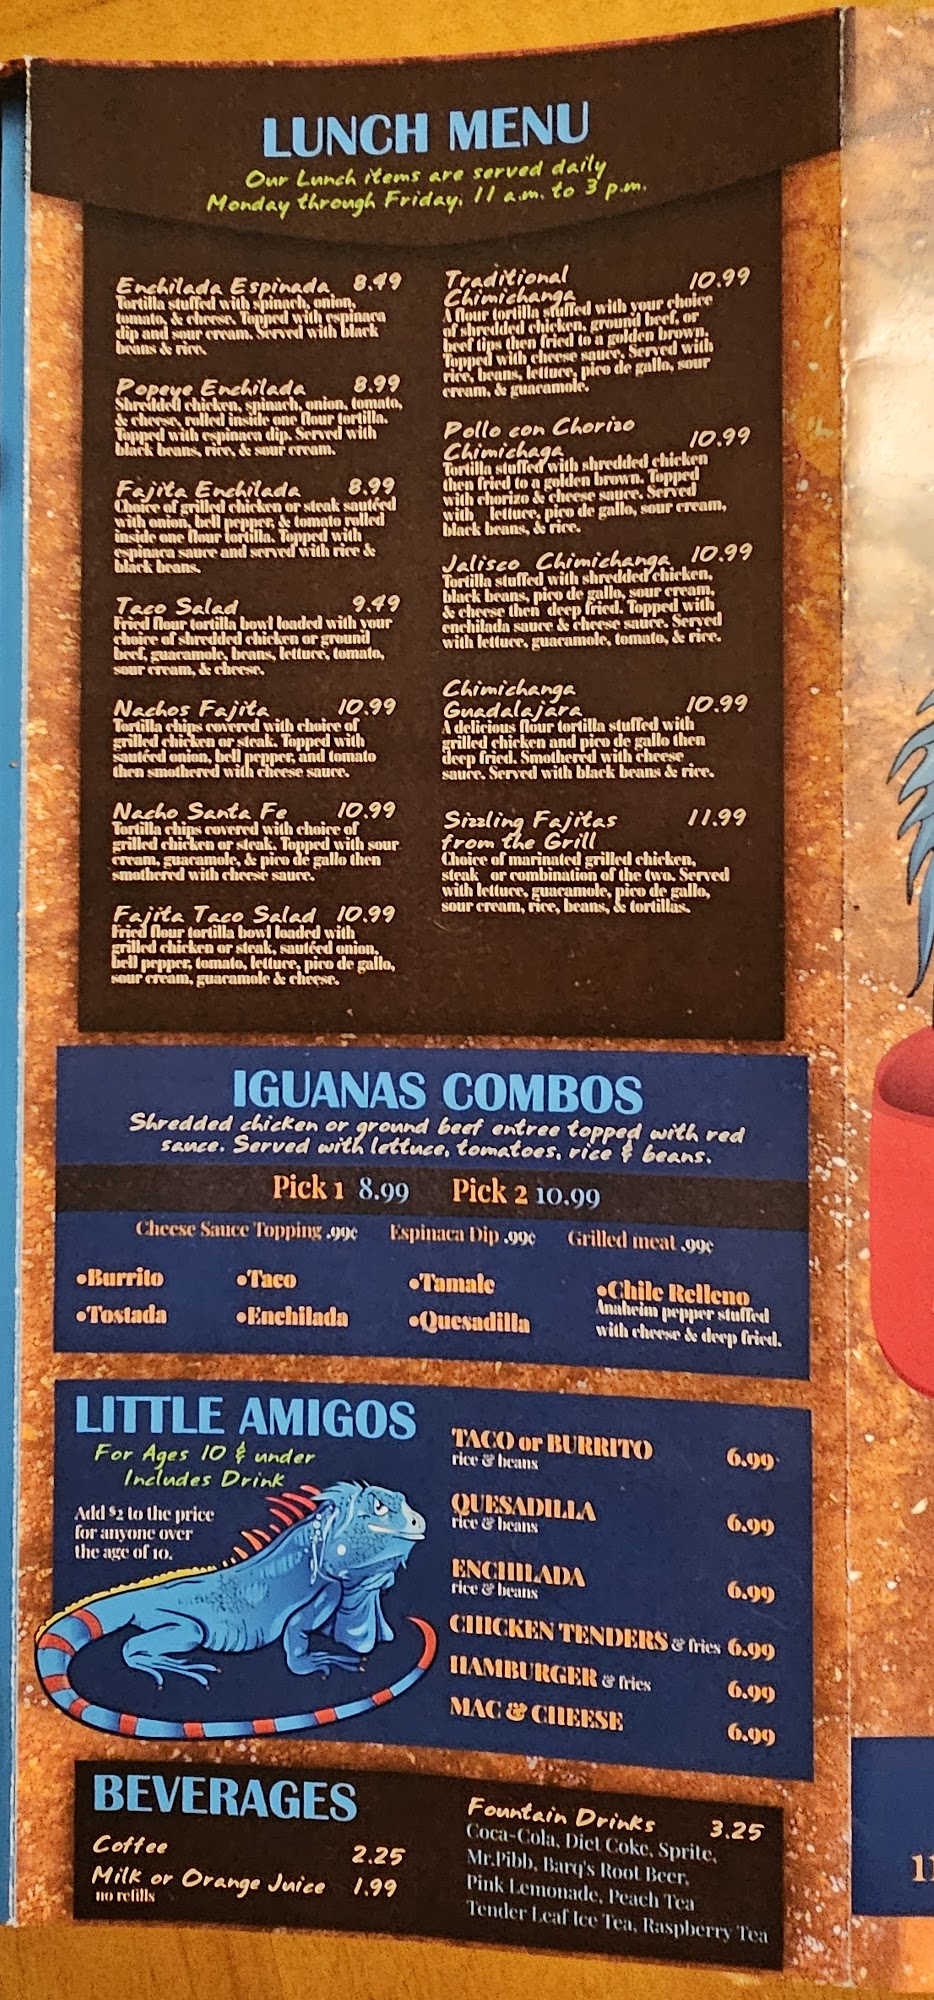 LUNCH MENU
Our Lunch items are served daily
Monday through Friday, 11 a.m. to 3 p.m.
Enchilada Espinada 8.49
Tortilla stuffed with spinach, onion,
tomato, & cheese. Topped with espinaca
dip and sour cream. Served with black
beans & rice.
Popeye Enchilada 8.99
Shredded chicken, spinach, onion, tomato,
& cheese, rolled inside one flour tortilla.
Topped with espinaca dip. Served with
black beans, rice, & sour cream.
Fajita Enchilada 8.99
Choice of grilled chicken or steak sautéed
with onion, bell pepper, & tomato rolled
inside one flour tortilla. Topped with
espinaca sauce and served with rice &
black beans.
Taco Salad 9.49
Fried flour tortilla bowl loaded with your
choice of shredded chicken or ground
beef, guacamole, beans, lettuce, tomato,
sour cream, & cheese.
Nachos Fajita 10.99
Tortilla chips covered with choice of
grilled chicken or steak. Topped with
sautéed onion, bell pepper, and tomato
then smothered with cheese sauce.
Nacho Santa Fe 10.99
Tortilla chips covered with choice of
grilled chicken or steak. Topped with sour
cream, guacamole, & pico de gallo then
smothered with cheese sauce.
Fajita Taco Salad 10.99
Fried flour tortilla bowl loaded with
grilled chicken or steak, sautéed onion,
bell pepper, tomato, lettuce, pico de gallo,
sour cream, guacamole & cheese.
Traditional 10.99
Chimichanga
A flour tortilla stuffed with your choice
of shredded chicken, ground beef, or
beef tips then fried to a golden brown.
Topped with cheese sauce, Served with
rice, beans, lettuce, pico de gallo, sour
cream, & guacamole.
Pollo con Chorizo
Chimichaga 10.99
Tortilla stuffed with shredded chicken
then fried to a golden brown. Topped
with chorizo & cheese sauce. Served
with lettuce, pico de gallo, sour cream,
black beans, & rice.
Jalisco Chimichanga 10.99
Tortilla stuffed with shredded chicken,
black beans, pico de gallo, sour cream,
& cheese then deep fried. Topped with
enchilada sauce & cheese sauce. Served
with lettuce, guacamole, tomato, & rice.
Chimichanga
Guadalajara 10.99
A delicious flour tortilla stuffed with
grilled chicken and pico de gallo then
deep fried. Smothered with cheese
sauce. Served with black beans & rice.
Sizzling Fajitas 11.99
from the Grill
Choice of marinated grilled chicken,
steak or combination of the two. Served
with lettuce, guacamole, pico de gallo,
sour cream, rice, beans, & tortillas.
IGUANAS COMBOS
Shredded chicken or ground beef entree topped with red
sauce. Served with lettuce, tomatoes, rice & beans.
Pick 1 8.99 Pick 2 10.99
Cheese Sauce Topping .99¢ Espinaca Dip .99¢ Grilled meat .99¢
•Burrito •Taco •Tamale •Chile Relleno
Anaheim pepper stuffed
with cheese & deep fried.
•Tostada •Enchilada •Quesadilla
LITTLE AMIGOS
For Ages 10 & under
Includes Drink
Add $2 to the price
for anyone over
the age of 10.
TACO or BURRITO 6.99
rice & beans
QUESADILLA 6.99
rice & beans
ENCHILADA 6.99
rice & beans
CHICKEN TENDERS & fries 6.99
HAMBURGER & fries 6.99
MAC & CHEESE 6.99
BEVERAGES
Coffee 2.25
Milk or Orange Juice 1.99
no refills
Fountain Drinks 3.25
Coca-Cola, Diet Coke, Sprite,
Mr.Pibb, Barq's Root Beer,
Pink Lemonade, Peach Tea
Tender Leaf Ice Tea, Raspberry Tea
11